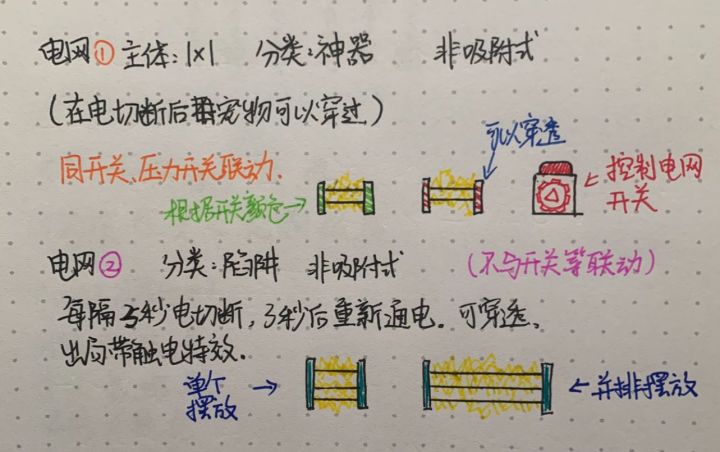 电网① 主体:1×1 分类:神器 非吸附式
(在电切断后宠物可以穿过)
同开关、压力开关联动.
可以穿透
根据开关颜色→
←控制电网
开关
电网② 分类:陷阱 非吸附式 (不与开关等联动)
每隔5秒电切断,3秒后重新通电。可穿透、
出局带触电特效.
单个 →
摆放
←并排摆放